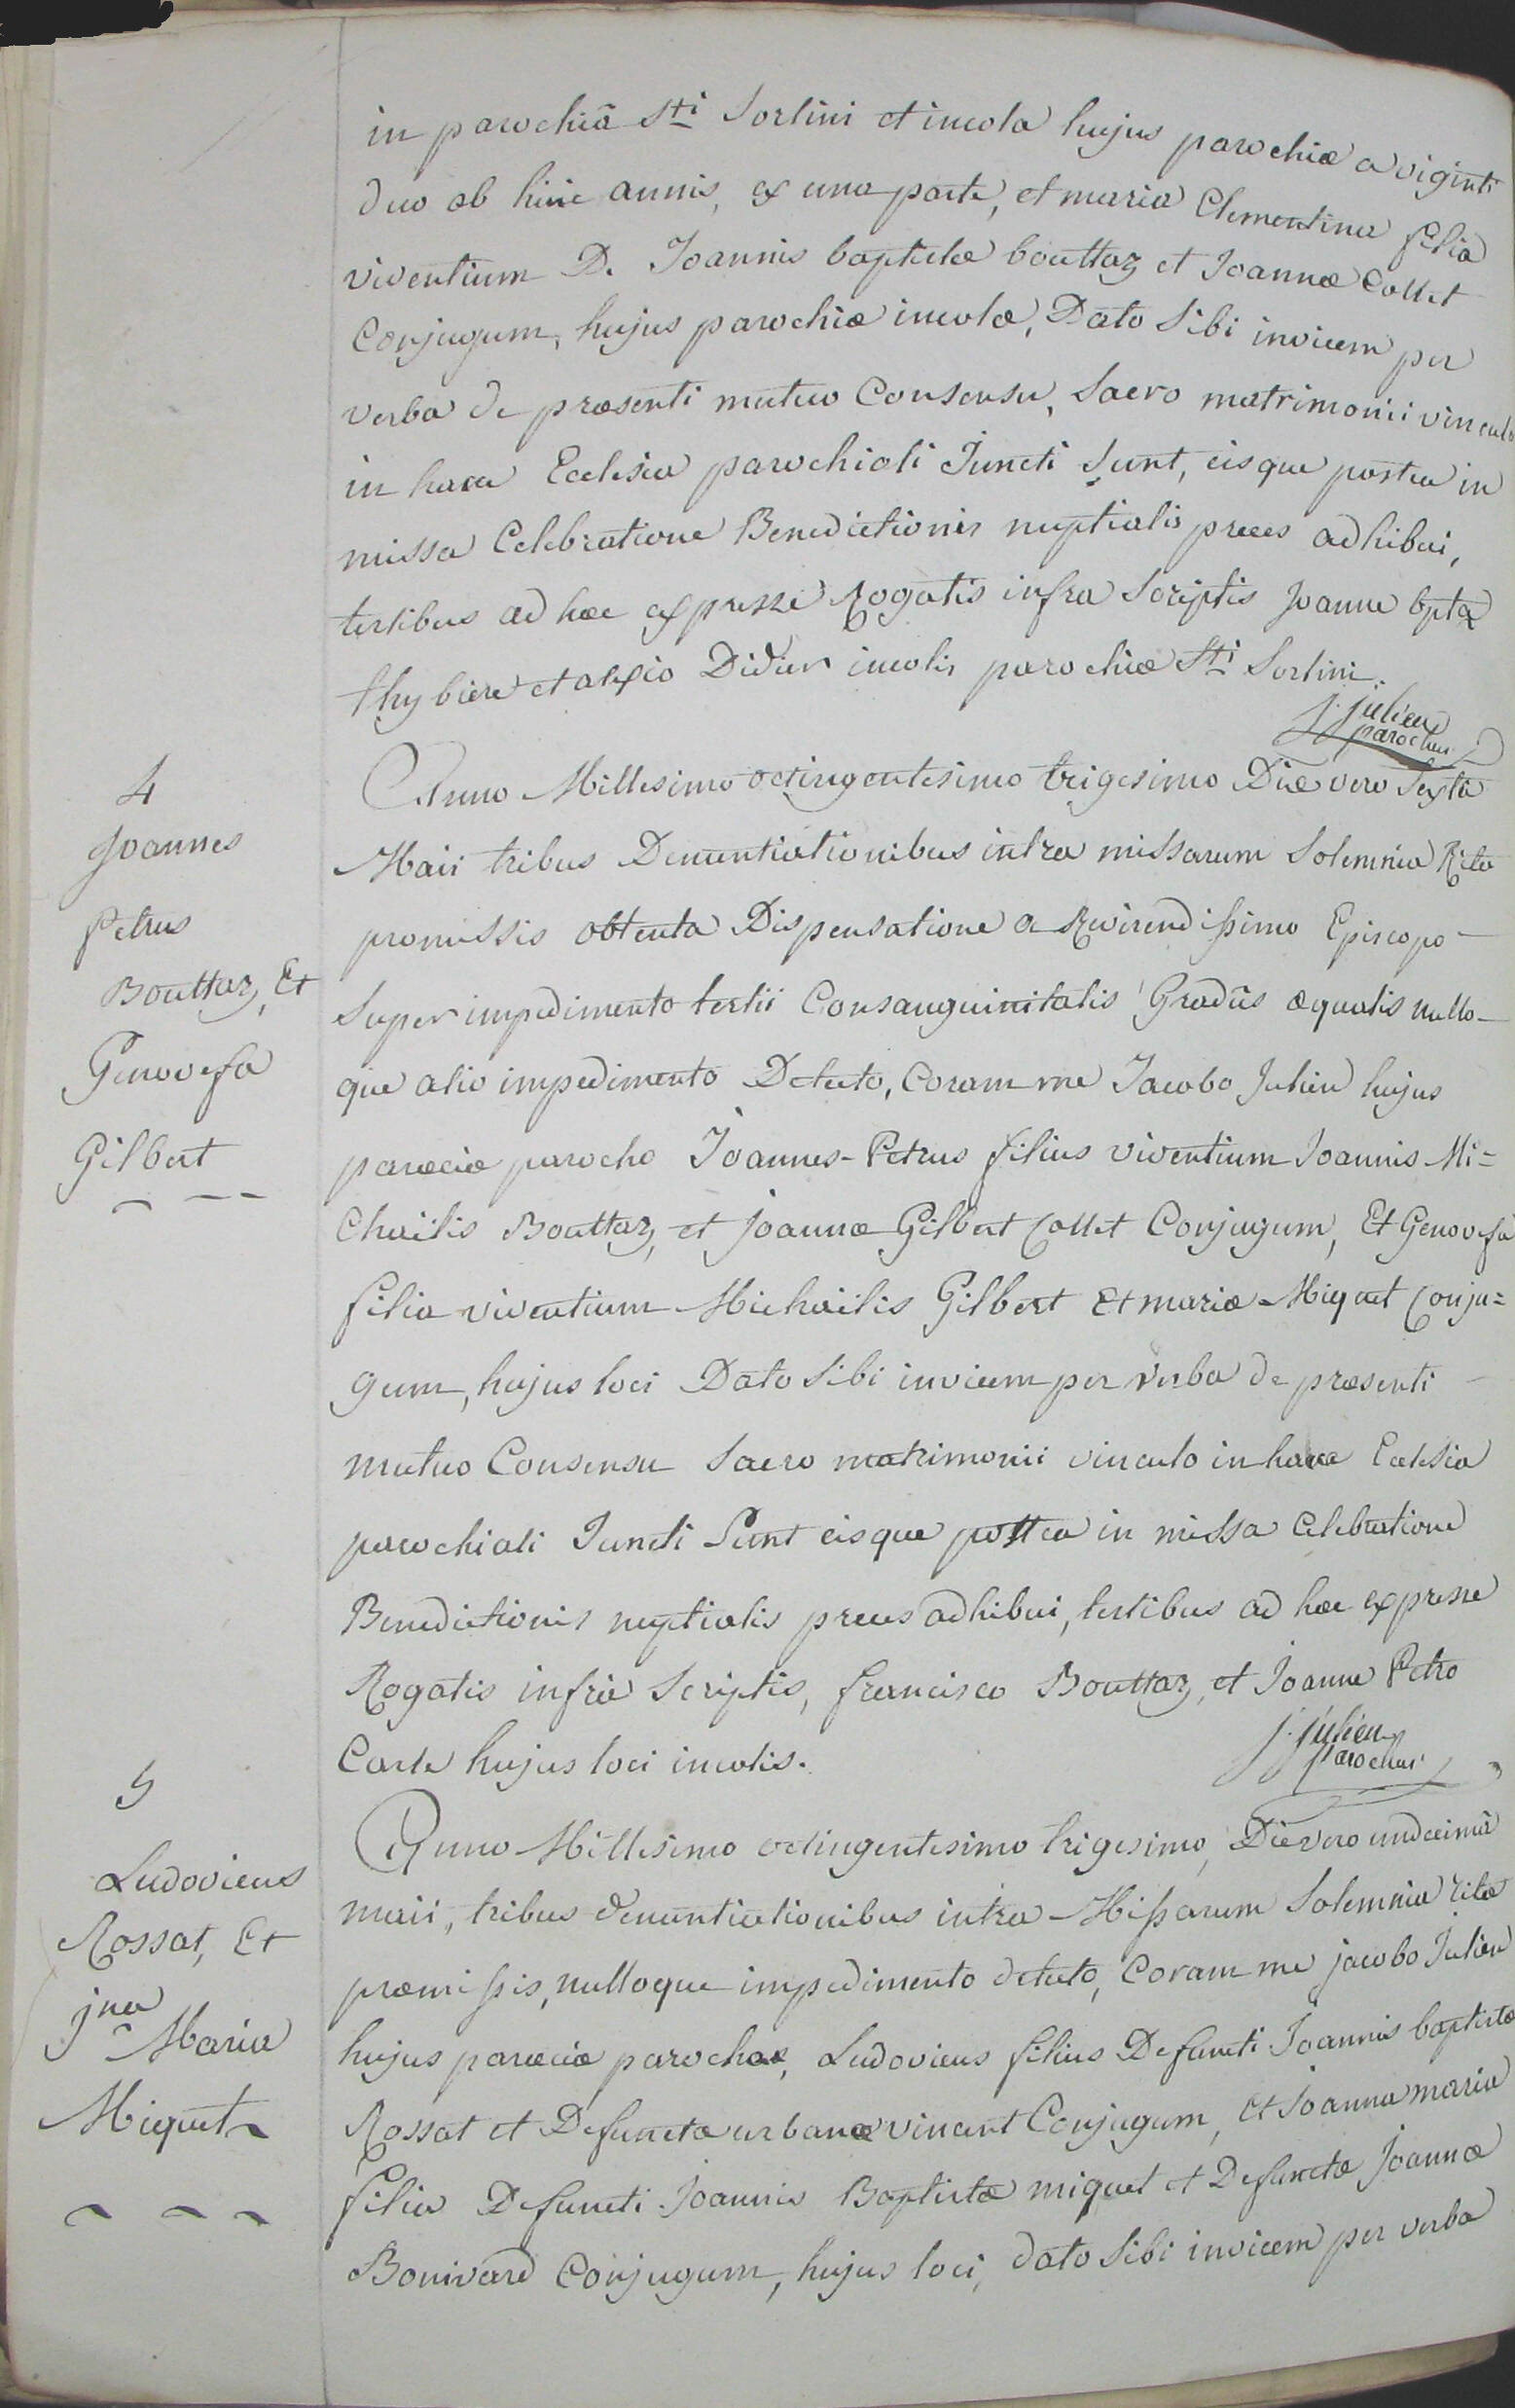 in parochiâ Sti Sorlini et incola hujus parochiæ a viginti
duo ab hinc annis, ex una parte, et maria Clementina filia
viventium D. Joannis baptistæ bouttaz et Joannæ Collet
Conjugum, hujus parochiæ incolæ, Dato Sibi invicem per
verba de præsenti mutuo Consensu, Sacro matrimonii vinculo
in hacce Ecclesia parochiali Juncti Sunt, eisque postea in
missæ Celebratione Benedictionis nuptialis preces adhibui,
testibus ad hoc expresse Rogatis infra Scriptis Joanne bpta
thybiere et alexio Didier incolis parochiæ Sti Sorlini.
j. julien
parochus
4
Joannes
Petrus
Bouttaz, Et
Genovefa
Gilbert
Anno Millesimo octingentesimo trigesimo Die vero Sexta
Maii tribus Denuntiationibus intra missarum Solemnia Rite
promissis obtenta Dispensatione a Reverendissimo Episcopo
Super impedimento tertii Consanguinitatis Gradûs æqualis nullo-
que alio impedimento Detecto, Coram me Jacobo Julien hujus
paræciæ parocho Joannes-Petrus filius viventium Joannis Mi=
Chaëlis Bouttaz, et Joannæ Gilbert Collet Conjugum, Et Genovefa
filia viventium Michaëlis Gilbert Et mariæ Miquet Conju=
gum, hujus loci Dato Sibi invicem per verba de præsenti
mutuo Consensu Sacro matrimonii vinculo in hacce Ecclesia
parochiali Juncti Sunt eisque postea in missæ Celebratione
Benedictionis nuptialis preces adhibui, testibus ad hoc expresse
Rogatis infrà Scriptis, francisco Bouttaz, et Joanne Petro
Carle hujus loci incolis.
j. julien
parochus
5
Ludovicus
Rossat, Et
jna Maria
Miquet
Anno Millesimo octingentesimo trigesimo, Die vero undecimâ
maii, tribus denuntiationibus intra Missarum Solemnia rite
præmissis, nulloque impedimento detecto, Coram me jacobo Julien
hujus paræciæ parocho, Ludovicus filius Defuncti Joannis baptistæ
Rossat et Defunctæ urbanæ vincent Conjugum, et Joanna maria
filia Defuncti Joannis Baptistæ miquet et Defunctæ Joannæ
Bonivard Conjugum, hujus loci, dato Sibi invicem per verba